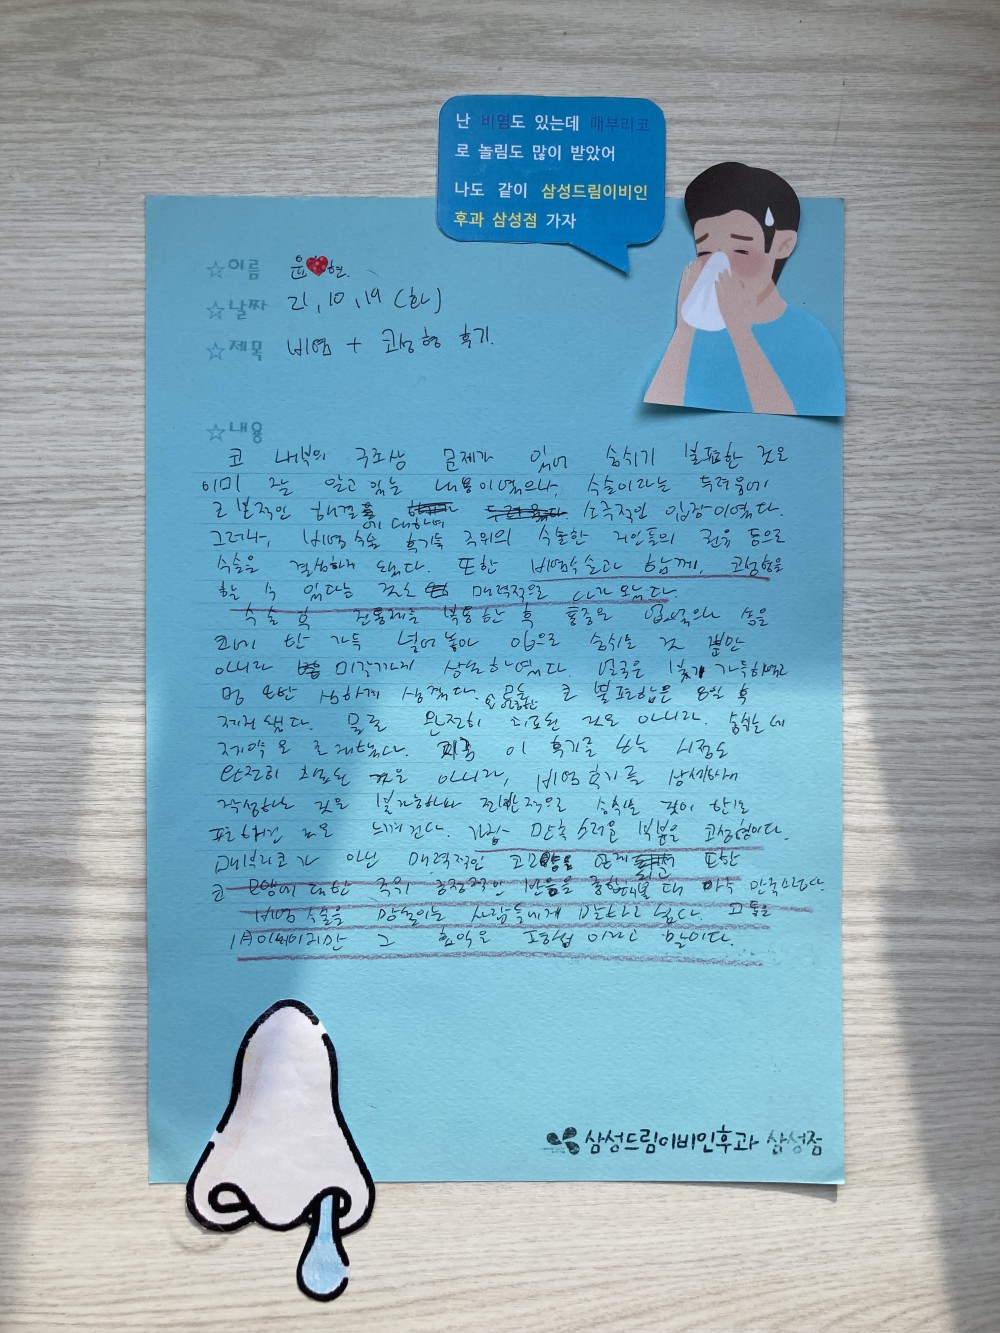 난 비염도 있는데 매부리코
로 놀림도 많이 받았어
나도 같이 삼성드림이비인
후과 삼성점 가자
☆이름 윤 현.
☆날짜 21, 10, 19 (화)
☆제목 비염 + 코성형 후기.
☆내용
코 내부의 구조상 문제가 있어 숨쉬기 불편한 것은
이미 잘 알고 있는 내용이었으나, 수술이라는 두려움에
근본적인 해결에 대하여 소극적인 입장이었다.
그러나, 비염수술 후기들 주위의 수술한 지인들의 권유 등으로
수술을 결심하게 되었다. 또한 비염수술과 함께, 코성형을
할 수 있다는 것은 매력적으로 다가 왔다.
수술 후 진통제를 복용한 후 통증은 없었으나 솜을
코에 한 가득 넣어놓아 입으로 숨쉬는 것 뿐만
아니라 미각까지 상실하였다. 얼굴은 붓기 가득하였고
멍 또한 심하게 생겼다. 코 불편함은 8일 후
제거됐다. 물론 완전히 치료된 것은 아니라. 숨쉬는데
제약은 존재했다. 이 후기를 쓰는 시점도
완전히 치료된 것은 아니라, 비염후기를 상세하게
작성하는 것은 불가능하나 전반적으로 숨쉬는 것이 한결
편해진 것은 느껴진다. 가장 만족스러운 부분은 코성형이다.
매부리코가 아닌 매력적인 코모양을 얻게 또한
코 모양에 대한 주위 긍정적인 반응을 종합해볼 때 아주 만족스럽다
비염수술을 망설이는 사람들에게 말하고 싶다. 고통은
1개월이지만 그 효익은 평생이라고 말이다.
삼성드림이비인후과 삼성점